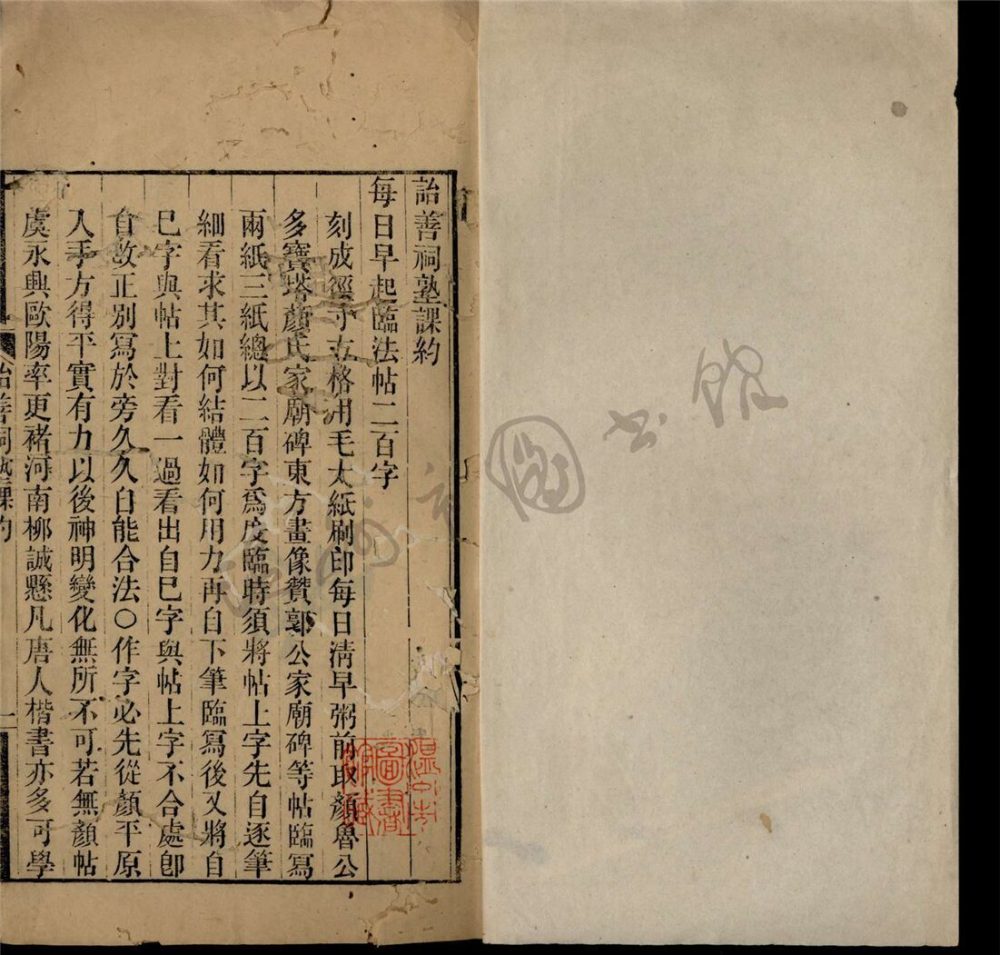 詒善祠塾課約
每日早起臨法帖二百字
刻成徑寸方格用毛太紙刷印每日清早粥前取顏魯公
多寶塔顏氏家廟碑東方畫像贊郭公家廟碑等帖臨寫
兩紙三紙總以二百字爲度臨時須將帖上字先自逐筆
細看求其如何結體如何用力再自下筆臨寫後又將自
巳字與帖上對看一過看出自巳字與帖上字不合處卽
自改正別寫於旁久久自能合法○作字必先從顏平原
入手方得平實有力以後神明變化無所不可若無顏帖
虞永興歐陽率更褚河南柳誠懸凡唐人楷書亦多可學
詒善祠塾課約
一
溫州市圖書館藏
圖书館